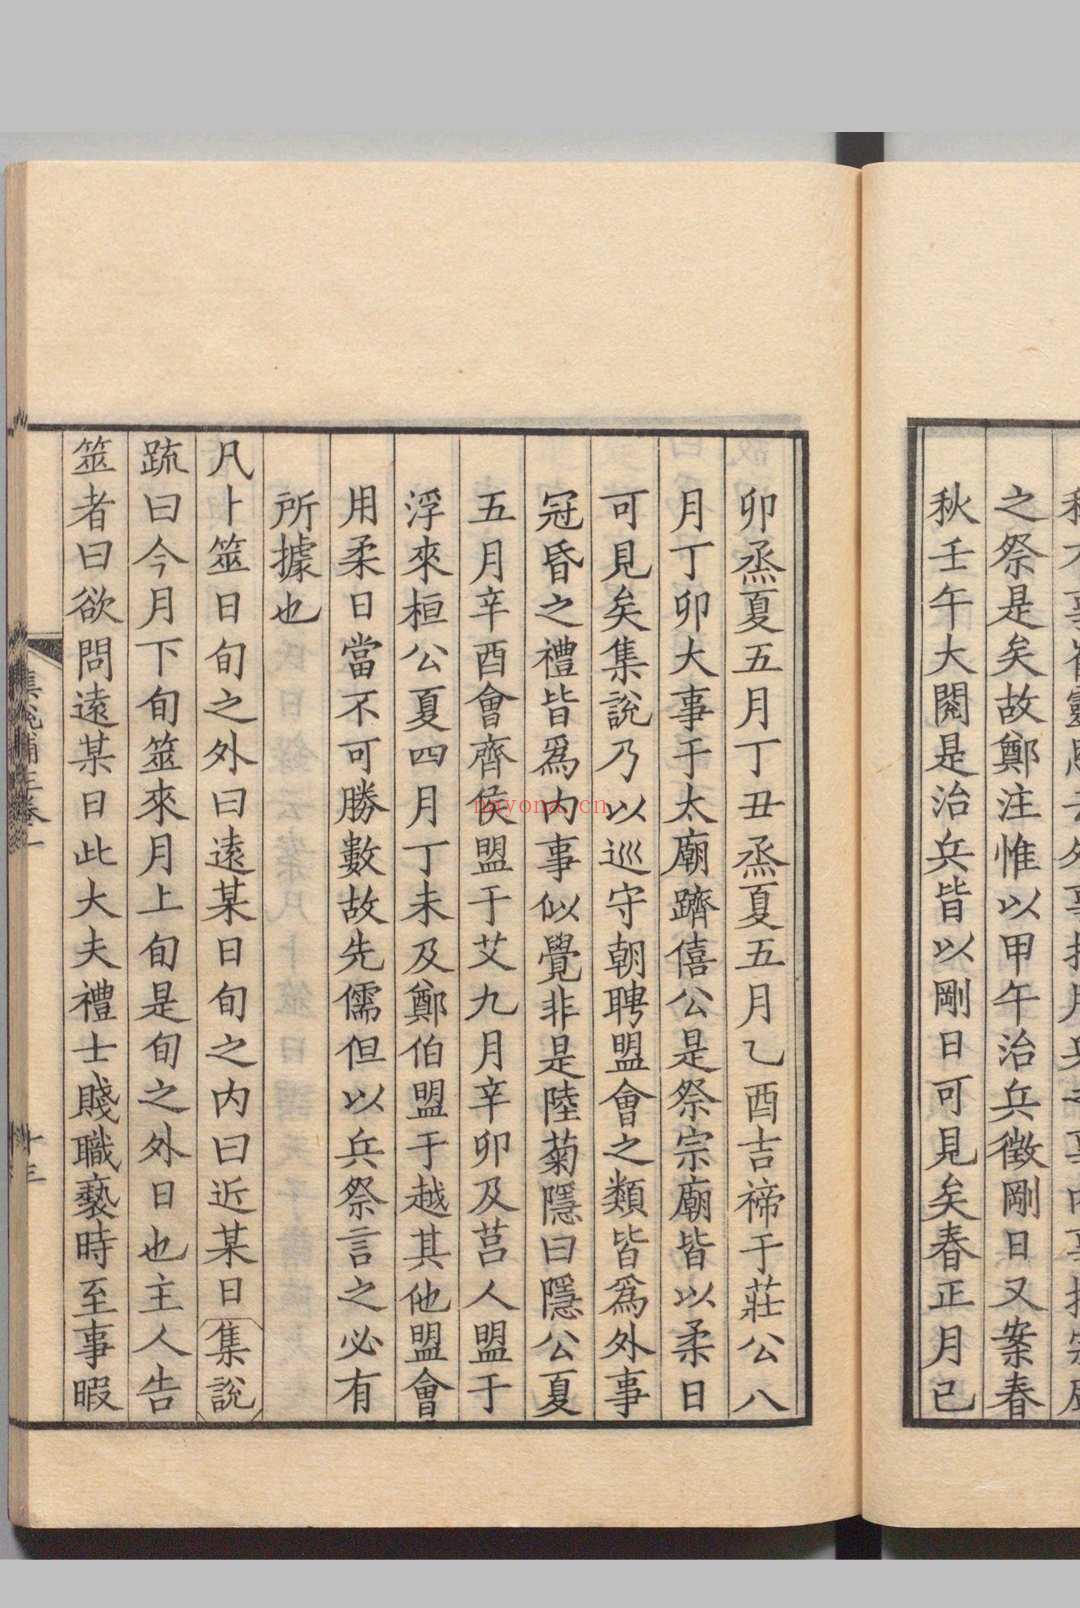 之祭是矣故鄭注惟以甲午治兵徵剛日又案春
秋壬午大閱是治兵皆以剛日可見矣春正月已
卯烝夏五月丁丑烝夏五月乙酉吉禘于莊公八
月丁卯大事于太廟躋僖公是祭宗廟皆以柔日
可見矣集說乃以巡守朝聘盟會之類皆爲外事
冠昏之禮皆爲内事似覺非是陸菊隱曰隱公夏
五月辛酉會齊侯盟于艾九月辛卯及莒人盟于
浮來桓公夏四月丁未及鄭伯盟于越其他盟會
用柔日當不可勝數故先儒但以兵祭言之必有
所據也
凡卜筮日旬之外曰遠某日旬之内曰近某日集說
疏曰今月下旬筮來月上旬是旬之外日也主人告
筮者曰欲問遠某日此大夫禮士賤職褻時至事暇
集說補正卷一
nayona.cn